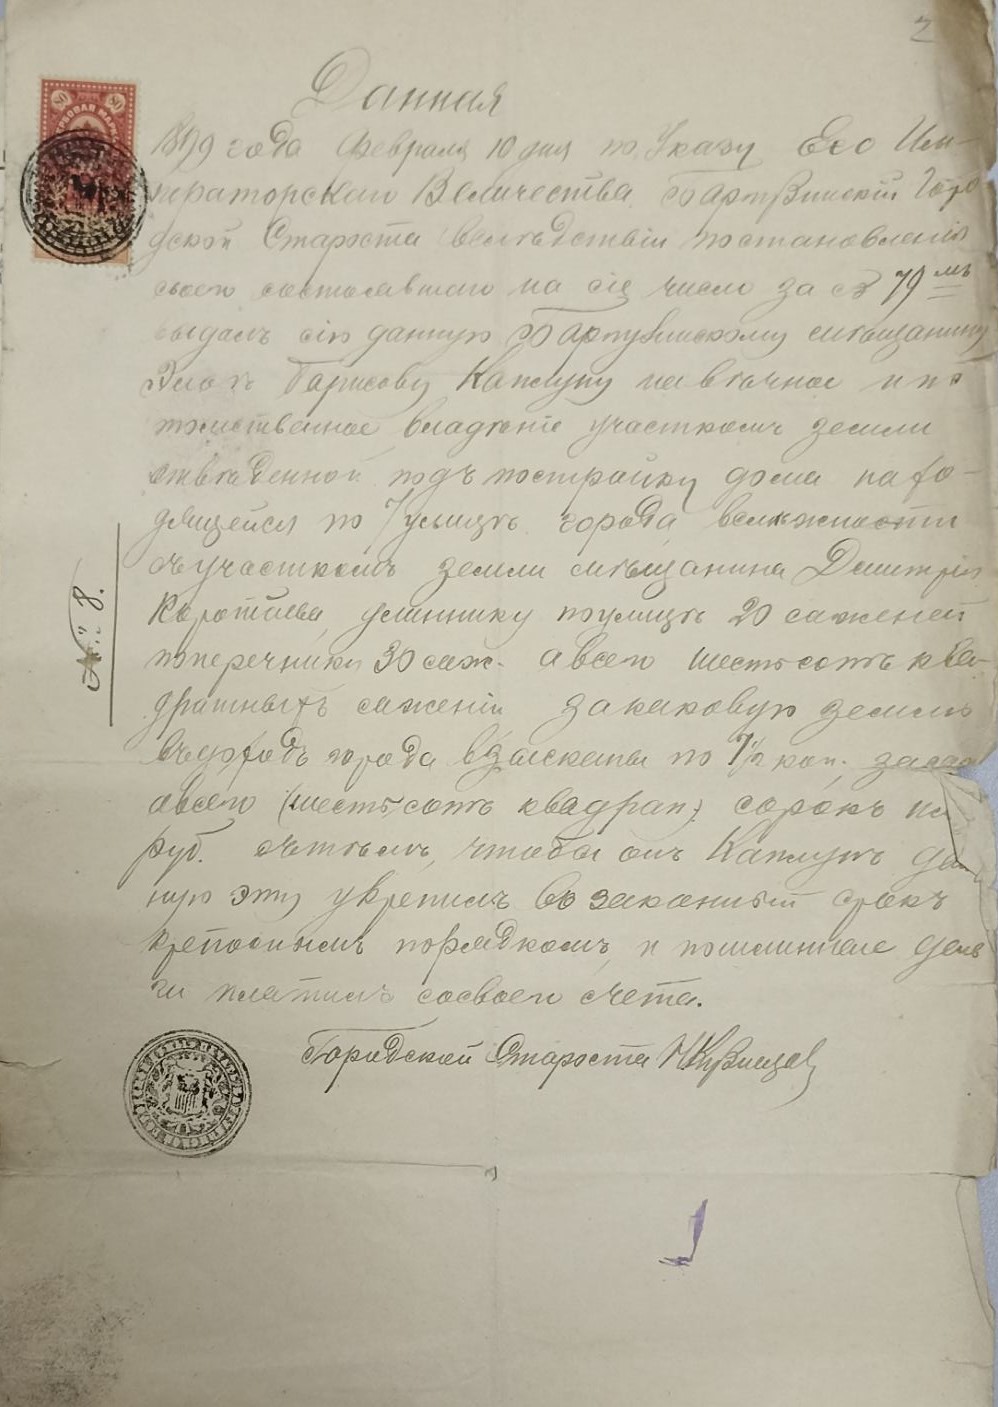 2
Данная
1899 года Февраля 10 дня по Указу Его Им-
ператорскаго Величества, Баргузинскій Горо
дской Староста вследствіи постановленія
своего состоявшаго на сіе число за № 79мъ
выдалъ сію данную Баргузинскому мѣщанину
Борисову Каплуну навѣчное и по
томственное владѣніе участкомъ земли
отвѣденной подъ постройку дома нахо-
дящейся по 7 улицѣ города, всмѣжности
съ участкомъ земли мѣщанина Дмитрія
Коротаева, длиннику поулицѣ 20 саженей
поперечнику 30 саж. а всего шестьсотъ ква-
дратныхъ саженій закаковую землю
въ доходъ города взысканы по 7½ коп.
авсего (шестьсотъ квадрат.) сорокъ пя
руб. сътѣмъ, чтобы онъ Каплунъ дан
ную эту укрепилъ во законный срокъ
крепоснымъ порядкомъ, и пошлинные день
ги платилъ сосвоего счета.
Городской Староста
№ 8.
80 80